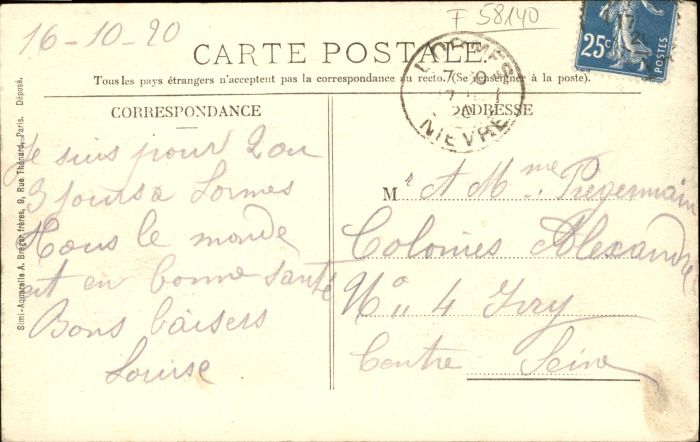 F 58140
16-10-20
CARTE POSTALE
Tous les pays étrangers n'acceptent pas la correspondance au recto. (Se renseigner à la poste).
25c POSTES
LORMES
NIÈVRE
CORRESPONDANCE
ADRESSE
Je suis pour 2 ou
3 jours a Lormes
Tous le monde
est en bonne santé
Bons baisers
Louise
Mr A Mme Pregermain
Colonies Alexandre
No 4 Ivry
Centre Seine
Simi-Aquarelle A. Breger frères, 9, Rue Thénard, Paris. Déposé.